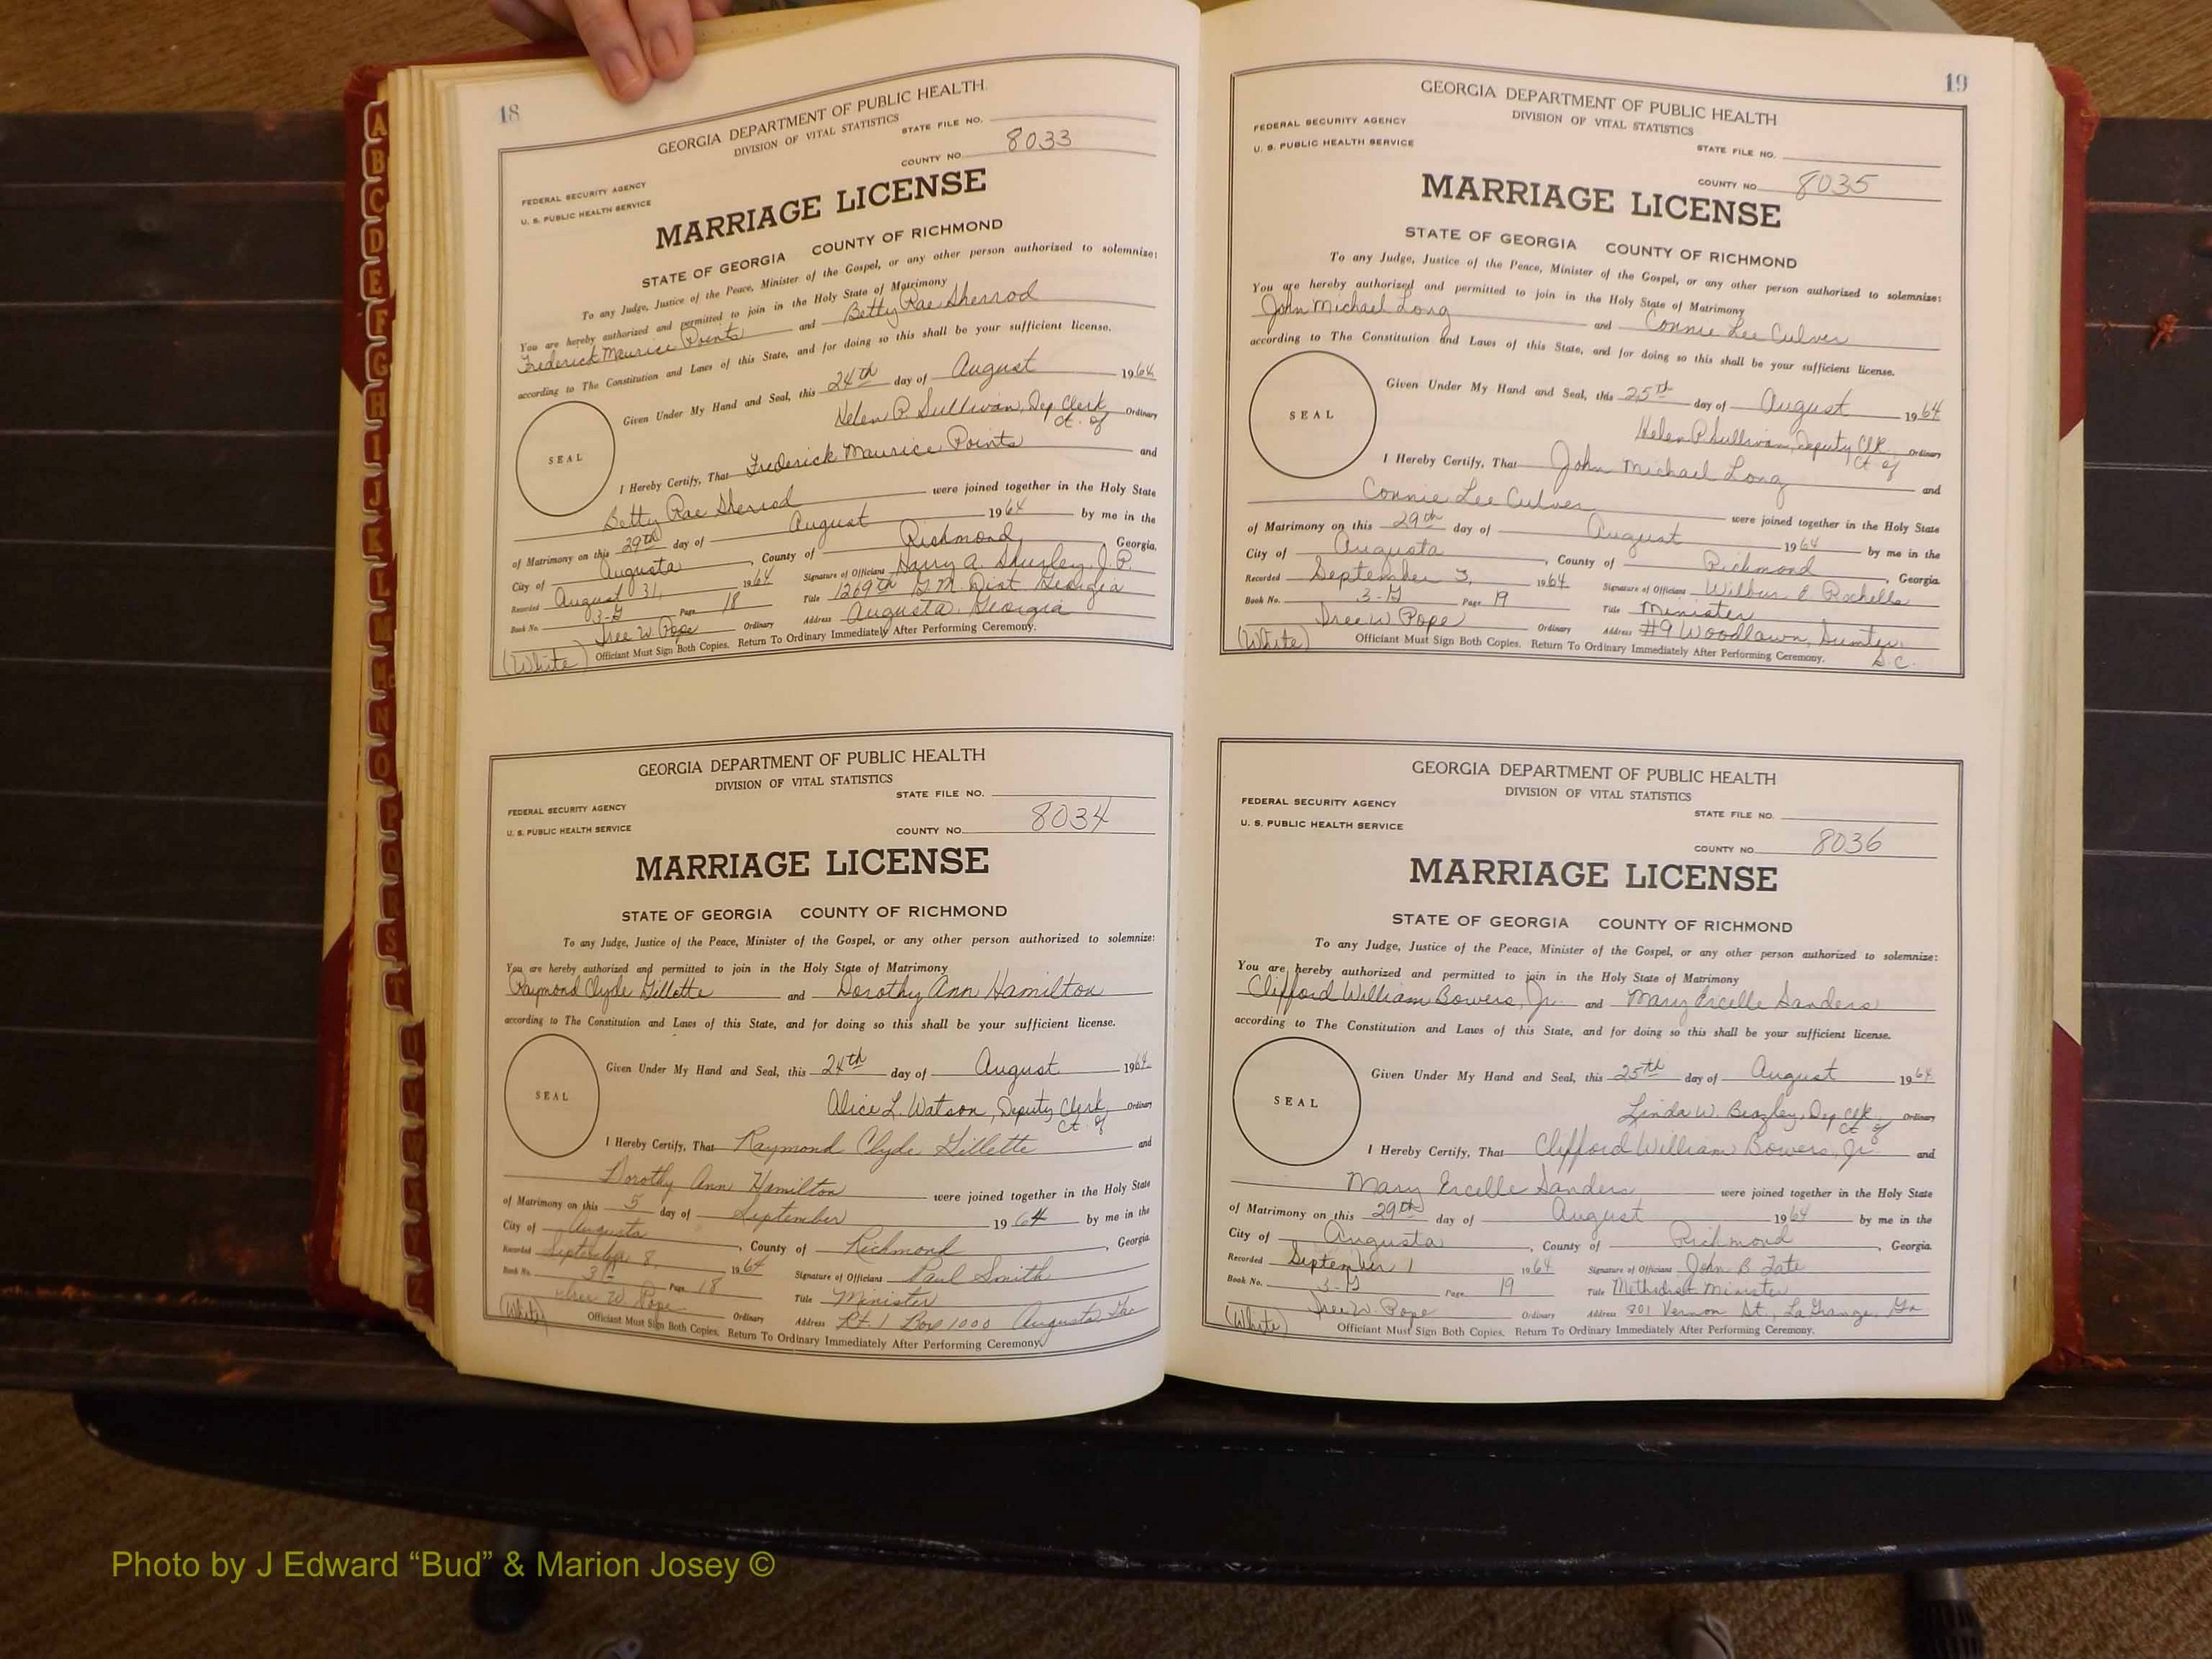 A
B
C
D
E
F
G
H
I
J
K
L
M
Mc
N
O
P
Q
R
S
T
U
V
W
X
Y
Z
18
GEORGIA DEPARTMENT OF PUBLIC HEALTH
DIVISION OF VITAL STATISTICS
STATE FILE NO.
COUNTY NO. 8033
FEDERAL SECURITY AGENCY
U. S. PUBLIC HEALTH SERVICE
MARRIAGE LICENSE
STATE OF GEORGIA COUNTY OF RICHMOND
To any Judge, Justice of the Peace, Minister of the Gospel, or any other person authorized to solemnize:
You are hereby authorized and permitted to join in the Holy State of Matrimony
Frederick Maurice Points and Betty Rae Sherrod
according to The Constitution and Laws of this State, and for doing so this shall be your sufficient license.
Given Under My Hand and Seal, this 24th day of August 1964
Helen P Sullivan, Dep Clerk Ordinary
Ct. of
SEAL
I Hereby Certify, That Frederick Maurice Points and
Betty Rae Sherrod were joined together in the Holy State
of Matrimony on this 29th day of August 1964 by me in the
City of Augusta, County of Richmond, Georgia.
Recorded August 31, 1964 Signature of Officiant Harry A. J. P.
Book No. 3-G Page 18 Title 1269th G.M. Dist Georgia
Tree W. Pope Ordinary Address Augusta, Georgia
(White) Officiant Must Sign Both Copies. Return To Ordinary Immediately After Performing Ceremony.
GEORGIA DEPARTMENT OF PUBLIC HEALTH
DIVISION OF VITAL STATISTICS
STATE FILE NO.
FEDERAL SECURITY AGENCY
U. S. PUBLIC HEALTH SERVICE
COUNTY NO. 8034
MARRIAGE LICENSE
STATE OF GEORGIA COUNTY OF RICHMOND
To any Judge, Justice of the Peace, Minister of the Gospel, or any other person authorized to solemnize:
You are hereby authorized and permitted to join in the Holy State of Matrimony
Raymond Clyde Gillette and Dorothy Ann Hamilton
according to The Constitution and Laws of this State, and for doing so this shall be your sufficient license.
Given Under My Hand and Seal, this 24th day of August 1964
Alice L. Watson, Deputy Clerk Ordinary
Ct. of
SEAL
I Hereby Certify, That Raymond Clyde Gillette and
Dorothy Ann Hamilton were joined together in the Holy State
of Matrimony on this 5 day of September 1964 by me in the
City of Augusta, County of Richmond, Georgia
Recorded September 8, 1964 Signature of Officiant Paul Smith
Book No. Page 18 Title Minister
Tree W Pope Ordinary Address Rt. 1 Box 1000 Augusta, Ga
(White) Officiant Must Sign Both Copies. Return To Ordinary Immediately After Performing Ceremony.
19
GEORGIA DEPARTMENT OF PUBLIC HEALTH
DIVISION OF VITAL STATISTICS
FEDERAL SECURITY AGENCY
U. S. PUBLIC HEALTH SERVICE
STATE FILE NO.
COUNTY NO. 8035
MARRIAGE LICENSE
STATE OF GEORGIA COUNTY OF RICHMOND
To any Judge, Justice of the Peace, Minister of the Gospel, or any other person authorized to solemnize:
You are hereby authorized and permitted to join in the Holy State of Matrimony
John Michael Long and Connie Lee Culver
according to The Constitution and Laws of this State, and for doing so this shall be your sufficient license.
Given Under My Hand and Seal, this 25th day of August 1964
Helen P Sullivan, Deputy Clk Ordinary
Ct of
SEAL
I Hereby Certify, That John Michael Long and
Connie Lee Culver were joined together in the Holy State
of Matrimony on this 29th day of August 1964 by me in the
City of Augusta, County of Richmond, Georgia.
Recorded September 3, 1964 Signature of Officiant Wilbur E. Rochelle
Book No. 3-G Page 19 Title Minister
Tree W Pope Ordinary Address #9 Woodlawn, Sumter,
S.C.
(White) Officiant Must Sign Both Copies. Return To Ordinary Immediately After Performing Ceremony.
GEORGIA DEPARTMENT OF PUBLIC HEALTH
DIVISION OF VITAL STATISTICS
FEDERAL SECURITY AGENCY
STATE FILE NO.
U. S. PUBLIC HEALTH SERVICE
COUNTY NO. 8036
MARRIAGE LICENSE
STATE OF GEORGIA COUNTY OF RICHMOND
To any Judge, Justice of the Peace, Minister of the Gospel, or any other person authorized to solemnize:
You are hereby authorized and permitted to join in the Holy State of Matrimony
Clifford William Bowers, Jr. and Mary Ercelle Sanders
according to The Constitution and Laws of this State, and for doing so this shall be your sufficient license.
Given Under My Hand and Seal, this 25th day of August 1964
Linda W. Beazley, Dep Clk Ordinary
Ct of
SEAL
I Hereby Certify, That Clifford William Bowers, Jr. and
Mary Ercelle Sanders were joined together in the Holy State
of Matrimony on this 29th day of August 1964 by me in the
City of Augusta, County of Richmond, Georgia.
Recorded September 1 1964 Signature of Officiant John B Tate
Book No. 3-G Page 19 Title Methodist Minister
Tree W. Pope Ordinary Address 801 Vernon St., LaGrange, Ga
(White) Officiant Must Sign Both Copies. Return To Ordinary Immediately After Performing Ceremony.
Photo by J Edward “Bud” & Marion Josey ©